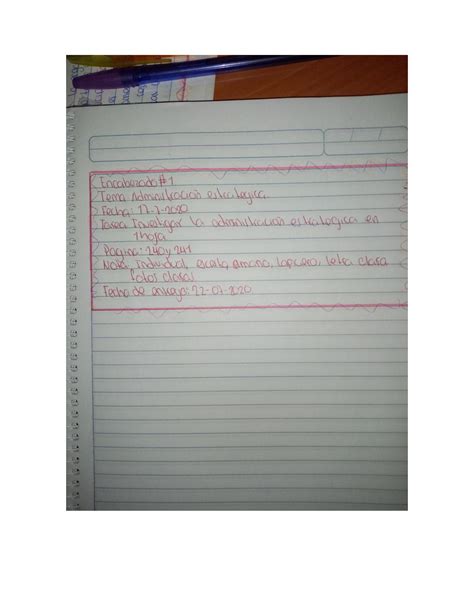 Encabezado #1
Tema: Administración estratégica.
Fecha: 17-7-2020
Tarea: Investigar la administración estratégica en
1 hoja
Pagina: 240 y 241
Nota: Individual, escrito, amano, lapicero, letra clara
fotos claras
Fecha de entrega: 22-07-2020